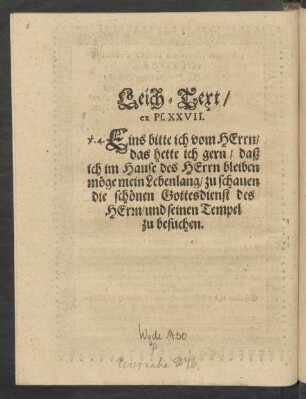 Leich-Text/
ex Ps. XXVII.
v. 4. Eins bitte ich vom HErrn/
das hette ich gern/ daß
ich im Hause des HErrn bleiben
möge mein Lebenlang/ zu schauen
die schönen Gottesdienst des
HErrn/ und seinen Tempel
zu besuchen.